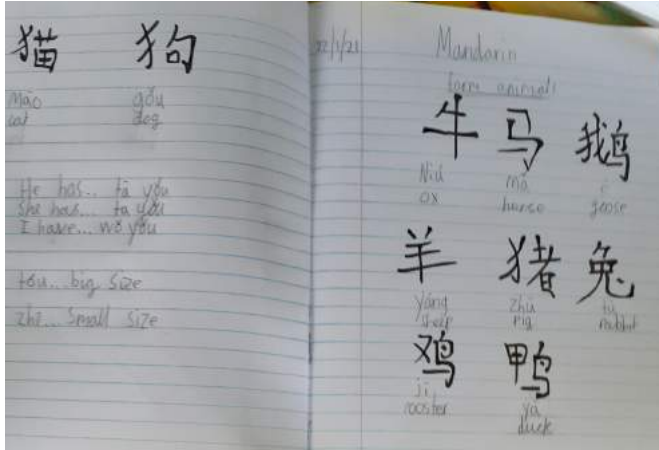 猫 狗
Māo gǒu
cat dog
He has... tā yǒu
She has... tā yǒu
I have... wǒ yǒu
tóu... big size
zhī... small size
22/1/21 Mandarin
farm animals
牛 马 鹅
Niú mǎ é
ox horse goose
羊 猪 兔
yáng zhū tù
sheep pig rabbit
鸡 鸭
jī yā
rooster duck